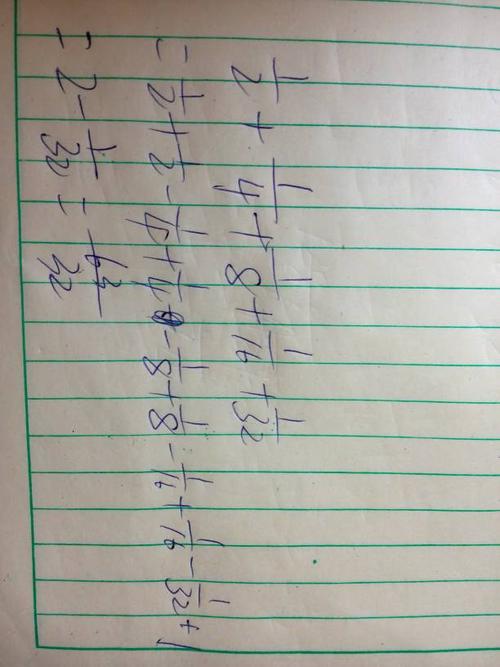 1/2 + 1/4 + 1/8 + 1/16 + 1/32
= 1/2 + 1/2 - 1/4 + 1/4 - 1/8 + 1/8 - 1/16 + 1/16 - 1/32 + 1
= 2 - 1/32 = 63/32